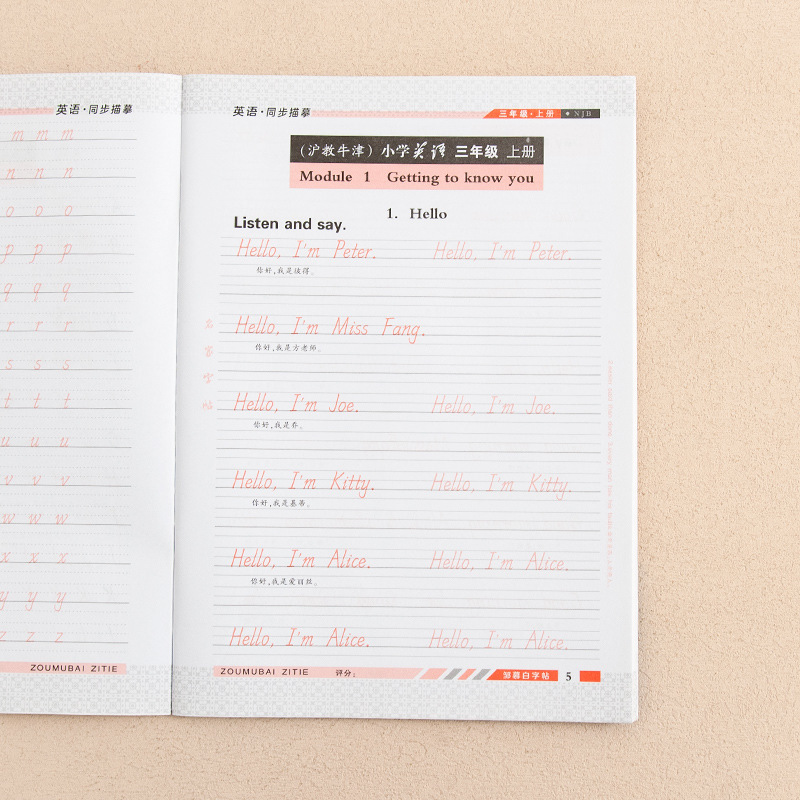 英语·同步描摹
m m m
n n n
o o o
p p p
q q q
r r r
s s s
t t t
u u u
v v v
w w w
x x x
y y y
z z z
ZOUMUBAI ZITIE
英语·同步描摹
三年级·上册 • NJB
(沪教牛津) 小学英语 三年级 上册
Module 1 Getting to know you
1. Hello
Listen and say.
Hello, I'm Peter. Hello, I'm Peter.
你好,我是彼得。
Hello, I'm Miss Fang.
你好,我是方老师。
Hello, I'm Joe. Hello, I'm Joe.
你好,我是乔。
Hello, I'm Kitty. Hello, I'm Kitty.
你好,我是基蒂。
Hello, I'm Alice. Hello, I'm Alice.
你好,我是爱丽丝。
Hello, I'm Alice. Hello, I'm Alice.
名家字帖
ZOUMUBAI ZITIE 评分:
邹慕白字帖 5